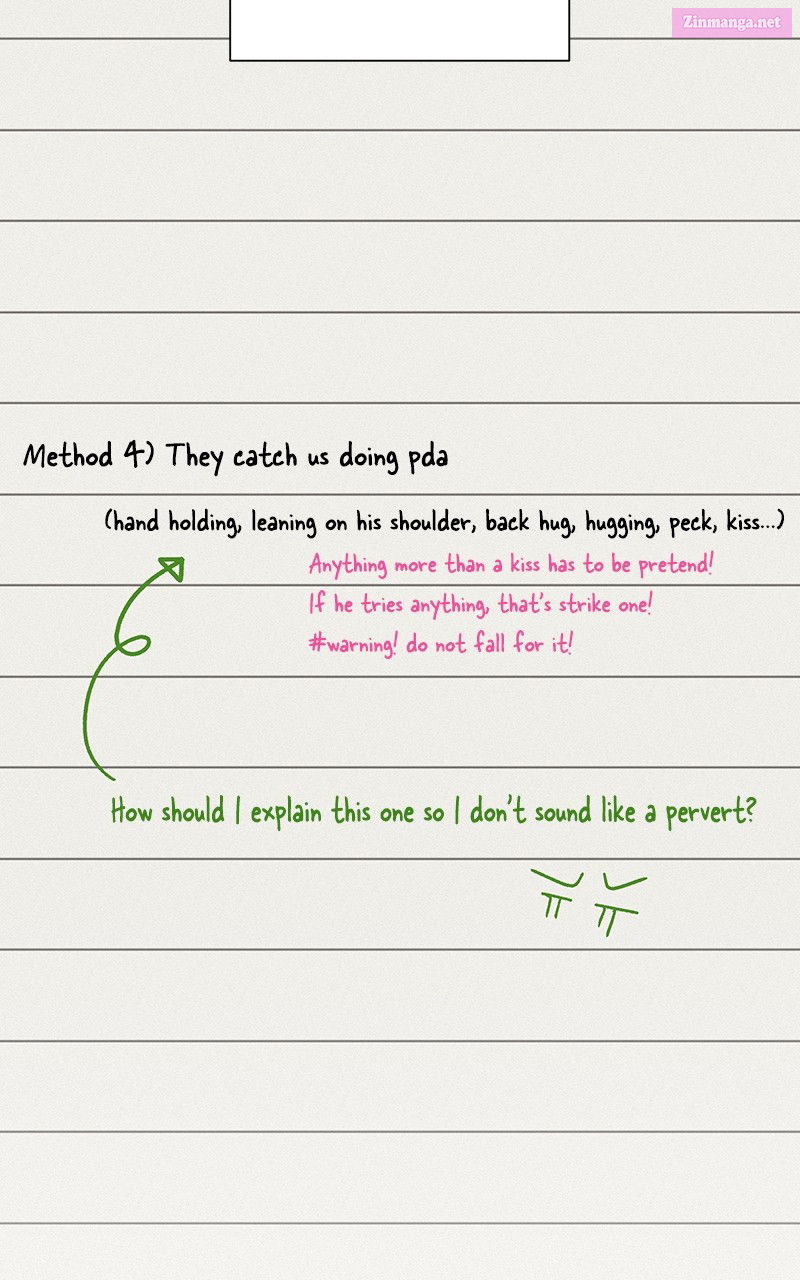 Zinmanga.net
Method 4) They catch us doing pda
(hand holding, leaning on his shoulder, back hug, hugging, peck, kiss...)
Anything more than a kiss has to be pretend!
If he tries anything, that's strike one!
#warning! do not fall for it!
How should I explain this one so I don't sound like a pervert?